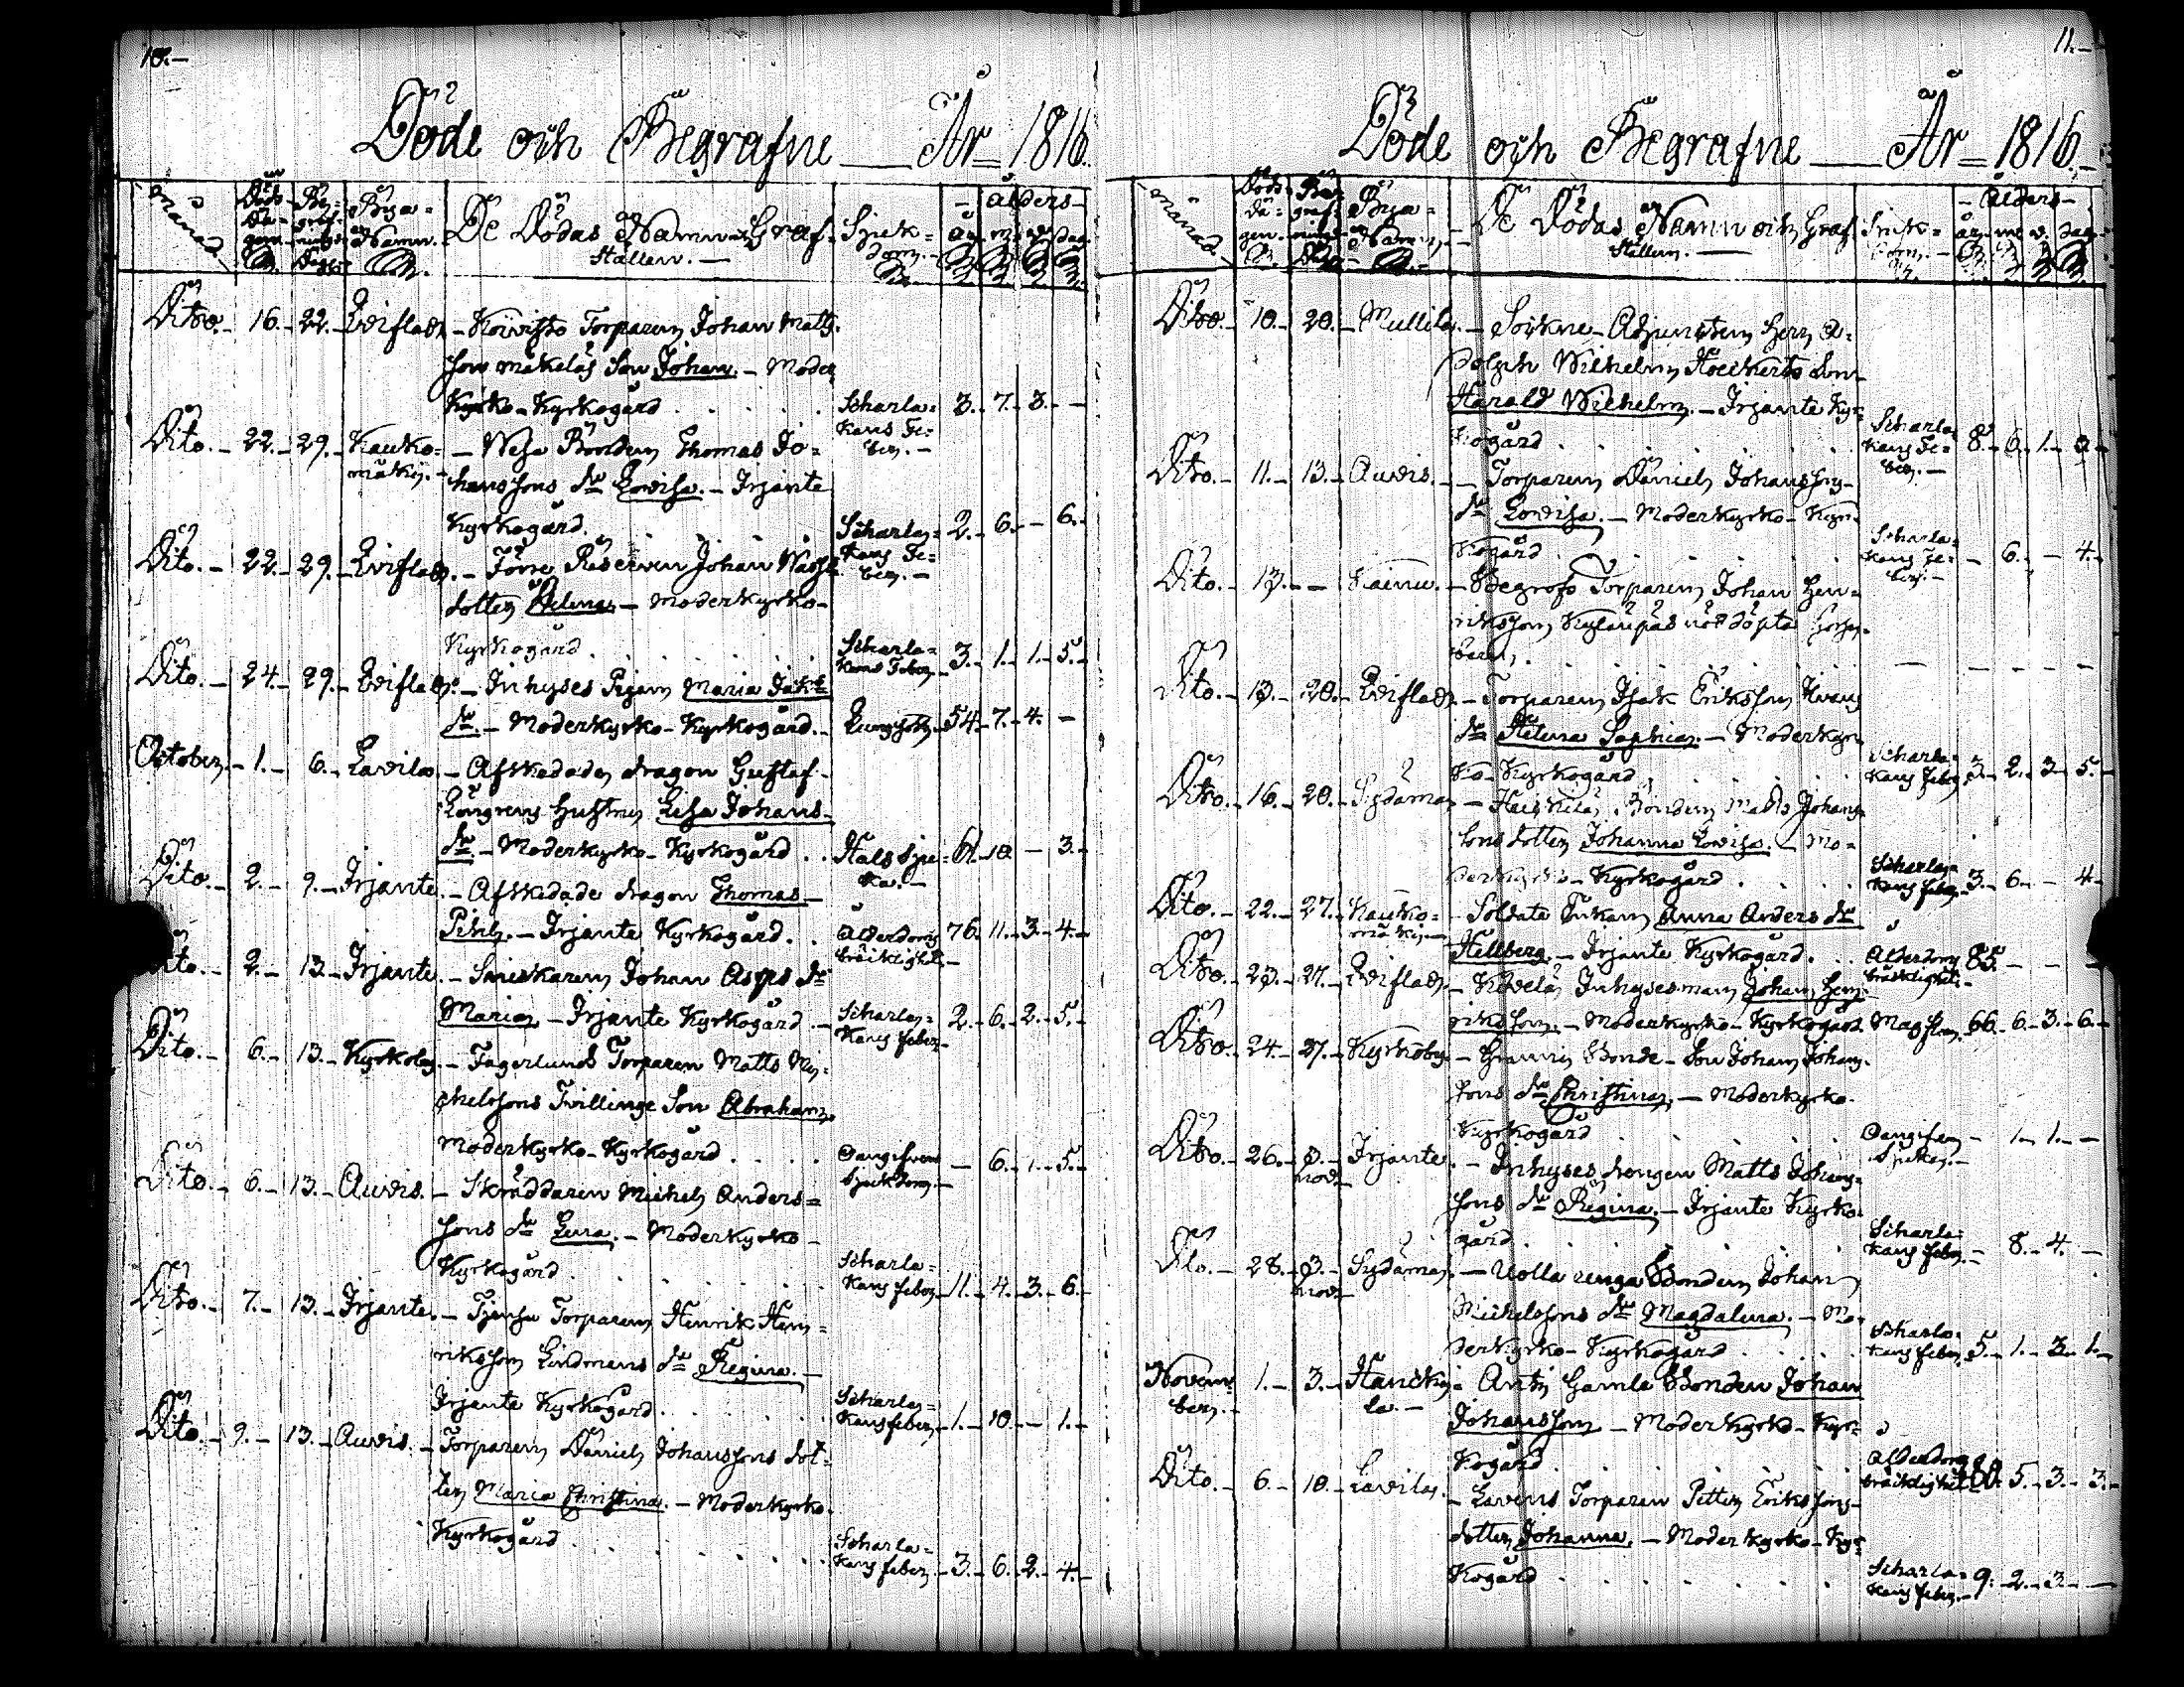 10.-
Döde och Begrafne — År 1816.
Månad
Döds Da- gen.
Be- graf- nings Dagen
Bya- Namn.
De Dödas Namn och Graf- Ställen. —
Sjuk- dom.
Ålders
år. m. v. dag.
Dito. - 16. - 22. - Eviflax - Koivisto Torparen Johan Matts-
son Mäkeläs Son Johan. - Moder
Kyrko - Kyrkogård . . . . . Scharla= 3. - 7. - 3. - -
kans Fe=
ber. -
Dito. - 22. - 29. - Kauko= - Wesa Bonden Thomas Jo=
mäky. - hanssons dr Lovisa. - Irjante
Kyrkogård. . . . . . Scharla= 2. - 6. - - 6. -
kans Fe=
ber. -
Dito. - 22. - 29. - Eviflax. - Förre Reserven Johan
dotter - Moderkyrko-
Kyrkogård . . . . . . Scharla= 3. - 1. - 1. - 5. -
kans Feber.
Dito. - 24. - 29. - Eviflax. - Inhyses Pigan Maria Jakobs
dr. - Moderkyrko - Kyrkogård. - Lungsot. - 54. - 7. - 4. - -
October. - 1. - 6. - Lavila - Afskedade dragon Gustaf
Löngrens Hustru Lisa Johans-
dr - Moderkyrko - Kyrkogård . . Halssju= 61. - 10. - 3. -
ka. -
Dito. - 2. - 9. - Irjante. - Afskedade dragon Thomas
Pihl. - Irjante Kyrkogård. . Ålderdoms 76. - 11. - 3. - 4. -
bräcklighet. -
Dito. - 2. - 13. - Irjante. - Snickaren Johan Asps dr
Maria. - Irjante Kyrkogård. - Scharla= 2. - 6. - 2. - 5. -
kans feber. -
Dito. - 6. - 13. - Kyrkoby. - Fagerlunds Torparen Matts Mi=
chelssons Tvillinge Son Abraham.
Moderkyrko - Kyrkogård . . . . Oangifven - 6. - 1. - 5. -
Sjukdom. -
Dito. - 6. - 13. - Auvis. - Skräddaren Michel Anders=
sons dr Lena. - Moderkyrko -
Kyrkogård . . . . . . Scharla=
kans feber. 11. - 4. - 3. - 6. -
Dito. - 7. - 13. - Irjante. - Torparen Henrik Hen=
riksson Lindmans dr Regina. -
Irjante Kyrkogård . . . . . Scharla=
kans feber. - 1. - 10. - - 1. -
Dito. - 9. - 13. - Auvis. - Torparen Daniel Johanssons dot=
ter Maria Christina. - Moderkyrko
Kyrkogård . . . . . . Scharla=
kans feber. - 3. - 6. - 2. - 4. -
11. -
Döde och Begrafne — År 1816. -
Månad
Döds Da- gen.
Be- graf- nings Dag
Bya- Namn.
De Dödas Namn och Graf Ställen. —
Sjuk- dom. -
Ålders
år. m. v. dag.
Dito. - 10. - 20. - Mullila. - Sockne-Adjuncten Herr A=
dolph Wilhelm Höckerts Son
Harald Wilhelm. - Irjante Kyr=
kogård . . . . . . Scharla= 8. - 6. - 1. -
kans Fe=
ber. -
Dito. - 11. - 13. - Auvis. - Torparen Daniel Johanssons
dr Lovisa. - Moderkyrko - Kyr=
kogård . . . . . . Scharla= - 6. - - 4. -
kans Fe=
ber. -
Dito. - 13. - - Kainu. - Torparen Johan Hen=
rikssons nöd döpta
barn. . . . . . . - - - - -
Dito. - 13. - 20. - Eviflax. - Torparen Isak Eriksson
dr Helena Sophia. - Moderkyr=
ko - Kyrkogård . . . . Scharla= 3. - 2. - 3. - 5. -
kans feber
Dito. - 16. - 20. - Sydänma - Heickilä Bonden Matts Johans=
sons dotter Johanna Lovisa. - Mo=
derkyrko - Kyrkogård . . . . Scharla= 3. - 6. - - 4. -
kans feber
Dito. - 22. - 27. - Kauko= - Soldate Enkan Anna Anders dr
mäky. - Hellberg. - Irjante Kyrkogård. . . Ålderdoms 85. - - - -
bräcklighet. -
Dito. - 23. - 27. - Eviflax. - Inhysesman Johan Hen=
riksson. - Moderkyrko - Kyrkogård. 66. - 6. - 3. - 6. -
Dito. - 24. - 27. - Kyrkoby. - Bonde-Son Johan Johans=
sons dr Christina. - Moderkyrko.
Kyrkogård . . . . . . Oangifven - 1. - 1. - -
Sjuka. -
Dito. - 26. - 3. - Irjante. - Inhyses drengen Matts Johans=
nov. sons dr Regina. - Irjante Kyrko=
gård. . . . . . . Scharla=
kans feber. - 8. - 4. - -
Dito. - 28. - 3. - Sydänma. - Bonden Johan
nov. Michelssons dr Magdalena. - Mo=
derkyrko - Kyrkogård . . . . Scharla= 5. - 1. - 3. - 1. -
kans feber.
Novem= - 1. - 3. - Hancki= - Anti Gamle Bonden Johan
ber. - la. - Johansson - Moderkyrko - Kyr=
kogård . . . . . . Ålderdoms
bräcklighet 5. - 3. - 3. -
Dito. - 6. - 10. - Lavila. - Torparen Petter Erikssons
dotter Johanna. - Moder kyrko - Kyr=
kogård . . . . . . Scharla= 9. - 2. - 3. - -
kans feber. -